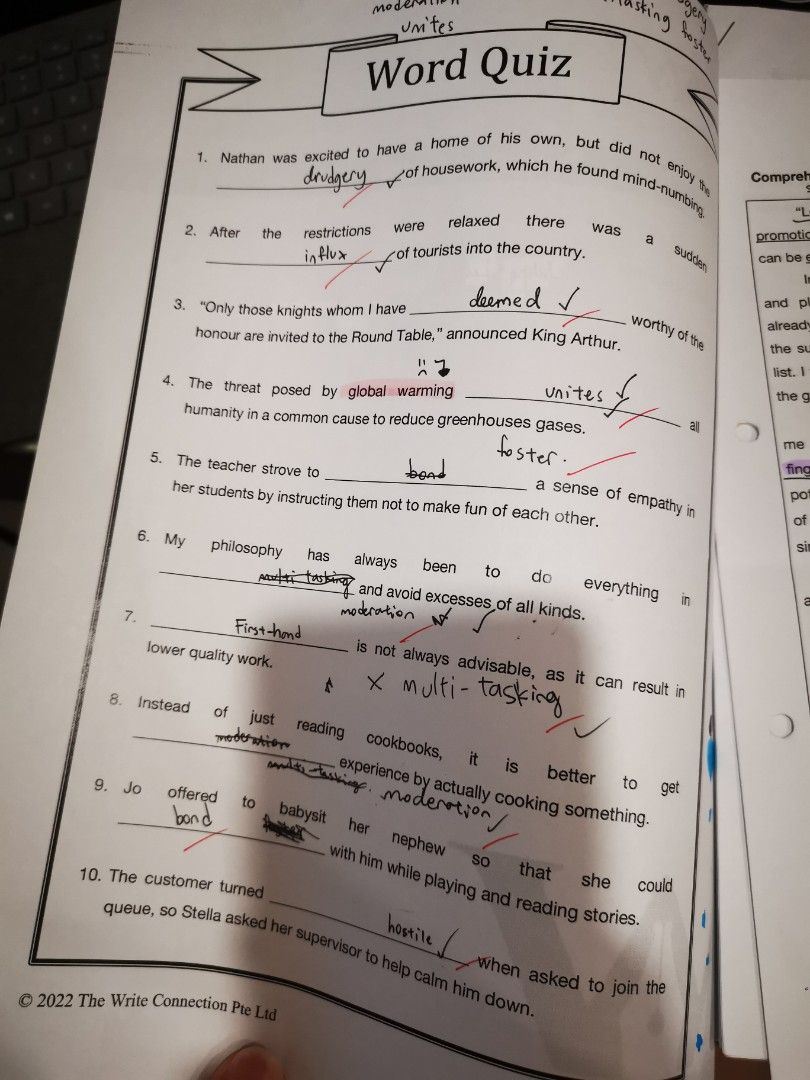 unites
foster
Word Quiz
1. Nathan was excited to have a home of his own, but did not enjoy the
drudgery of housework, which he found mind-numbing.
2. After the restrictions were relaxed there was a sudden
influx of tourists into the country.
3. "Only those knights whom I have deemed worthy of the
honour are invited to the Round Table," announced King Arthur.
4. The threat posed by global warming unites all
humanity in a common cause to reduce greenhouses gases.
foster.
5. The teacher strove to bond a sense of empathy in
her students by instructing them not to make fun of each other.
6. My philosophy has always been to do everything in
multi tasking and avoid excesses of all kinds.
moderation
7. First-hand is not always advisable, as it can result in
lower quality work.
x multi-tasking
8. Instead of just reading cookbooks, it is better to get
moderation experience by actually cooking something.
multi-tasking. moderation
9. Jo offered to babysit her nephew so that she could
bond with him while playing and reading stories.
10. The customer turned hostile when asked to join the
queue, so Stella asked her supervisor to help calm him down.
© 2022 The Write Connection Pte Ltd
promotio
can be
and pl
already
the su
list. I
the g
me
fing
pot
of